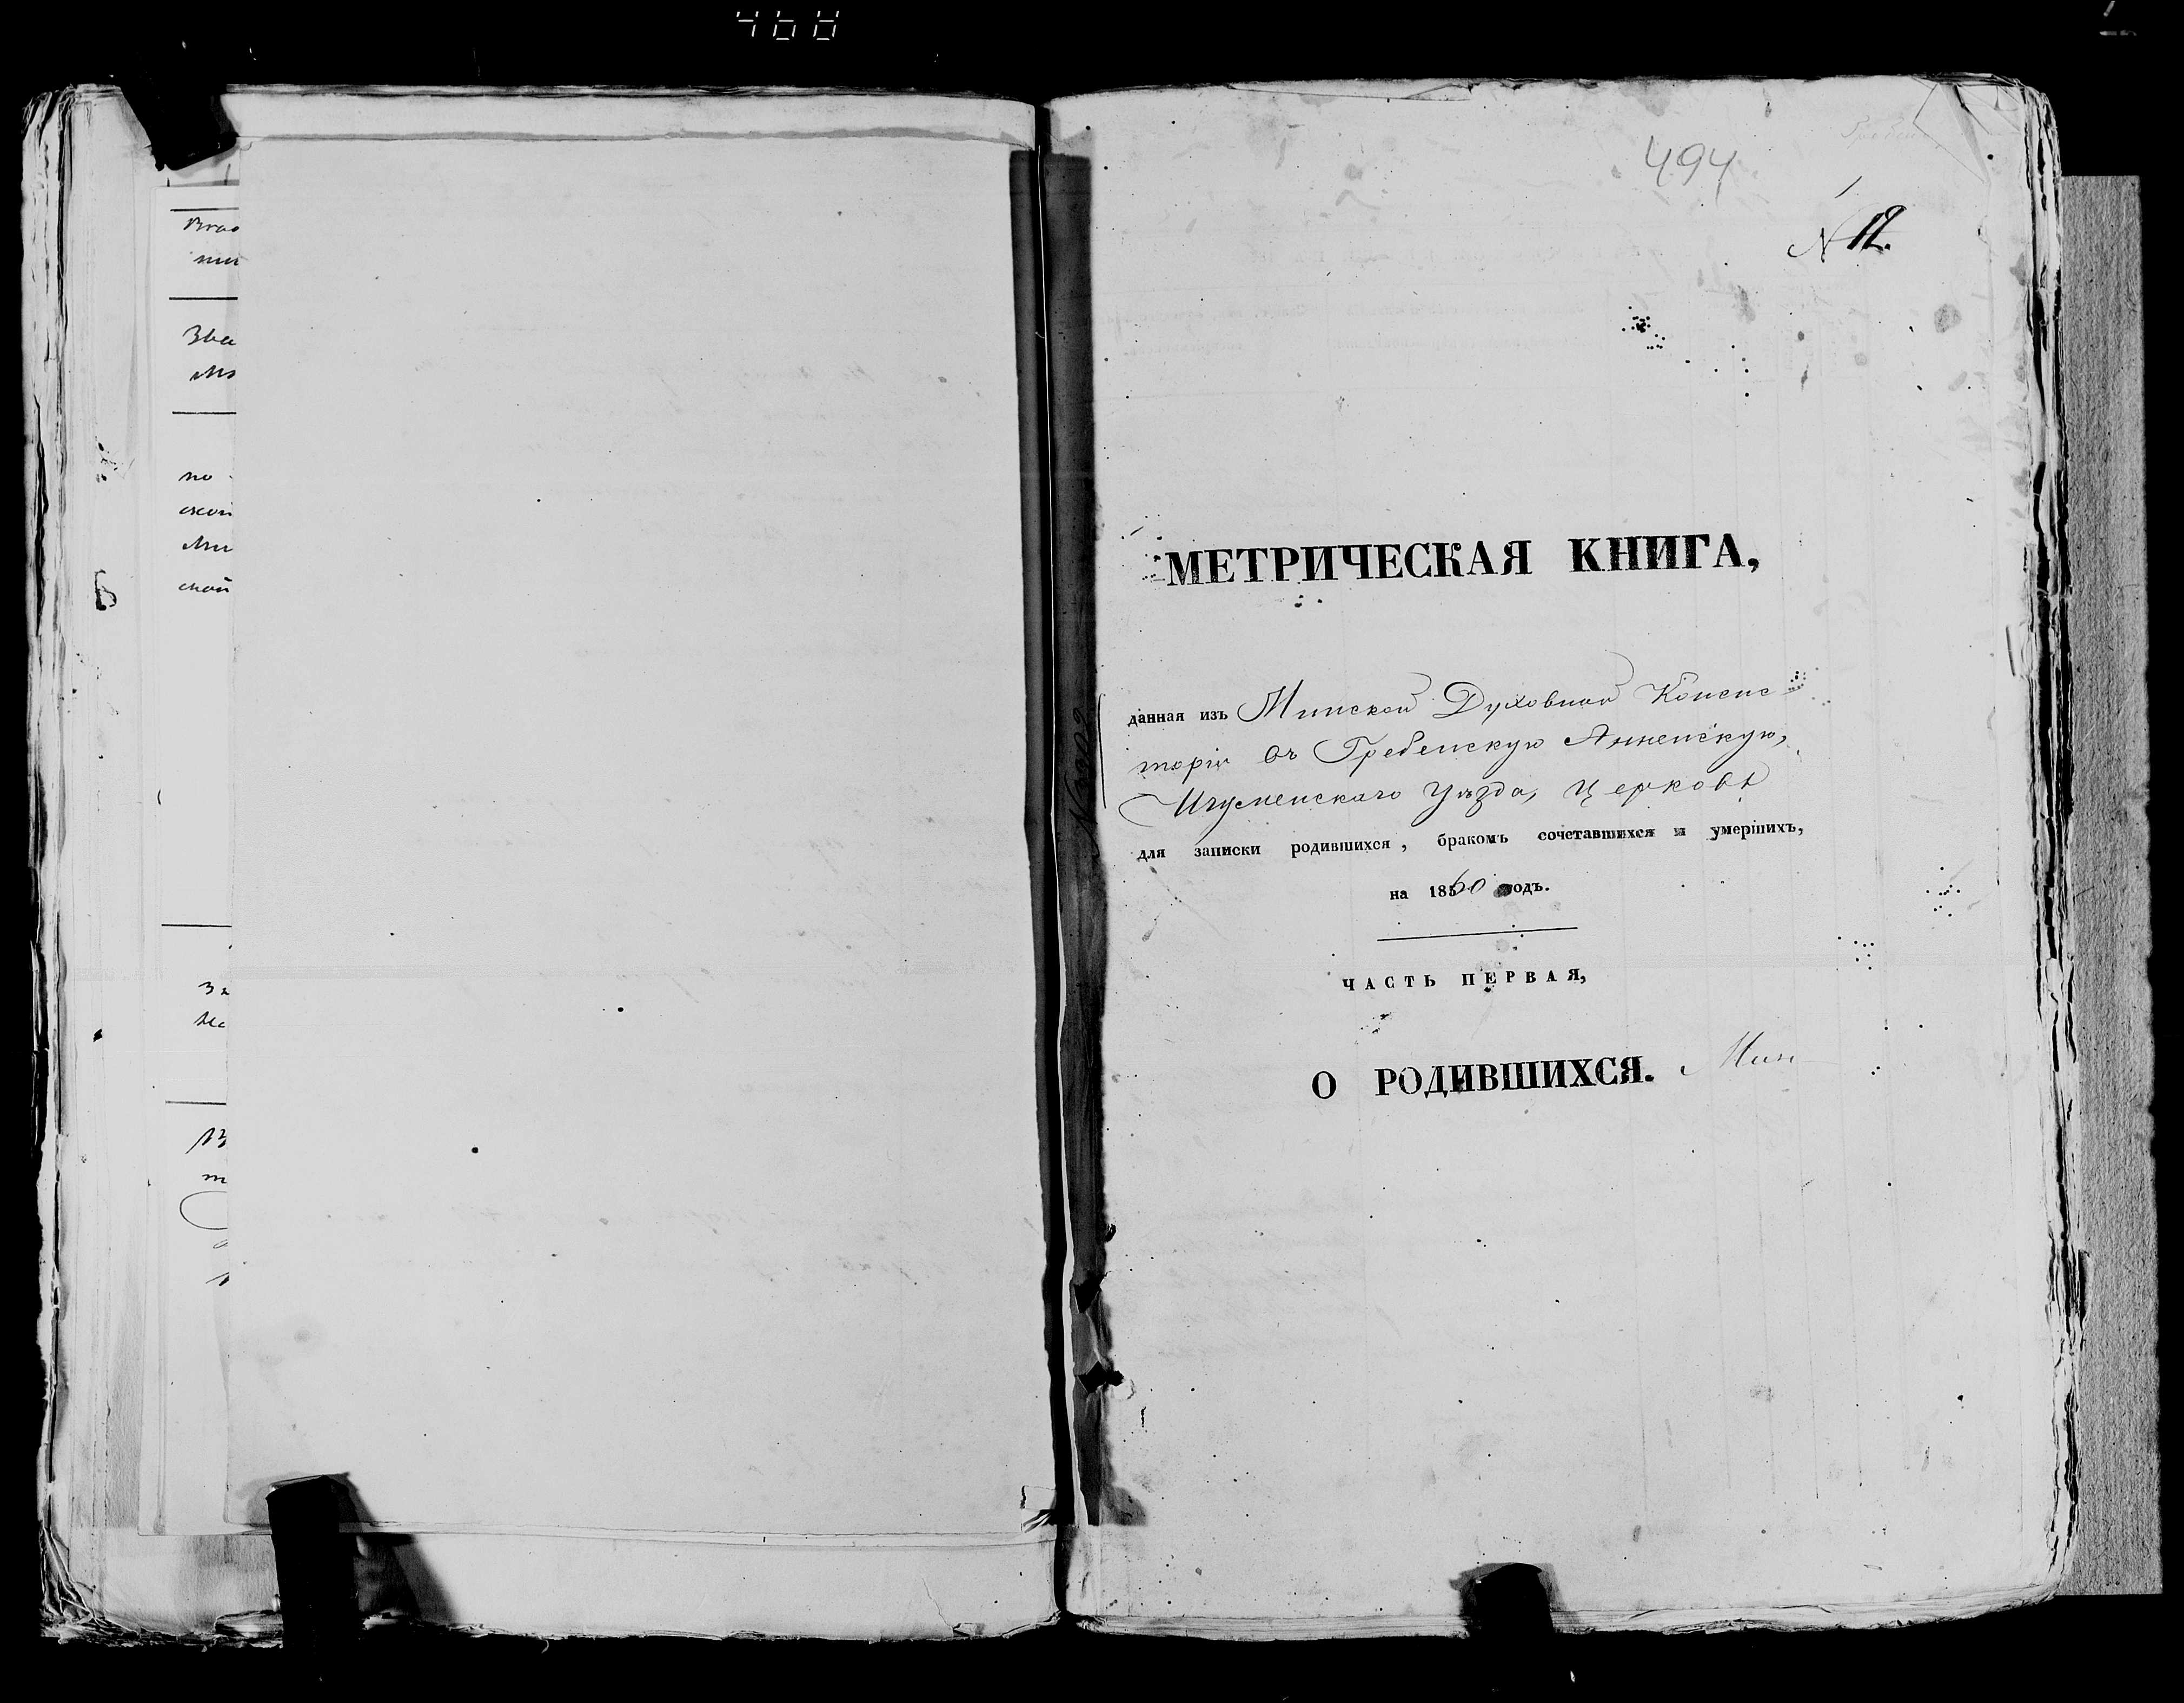 468
494
N 12.
МЕТРИЧЕСКАЯ КНИГА,
данная изъ Минской Духовной Консис
торіи въ Гребенскую Анненскую,
Игуменскаго уѣзда, Церковь
для записки родившихся, бракомъ сочетавшихся и умершихъ,
на 1860 годъ.
ЧАСТЬ ПЕРВАЯ,
О РОДИВШИХСЯ. Мин